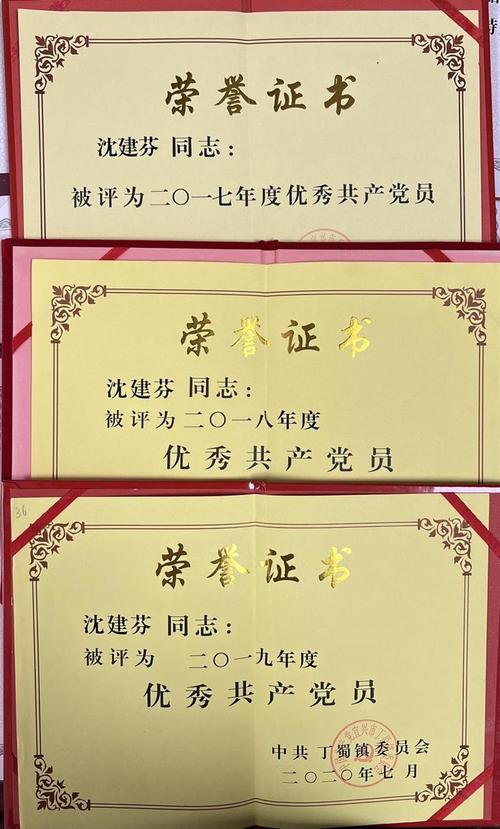 荣誉证书
沈建芬 同志：
被评为二〇一七年度优秀共产党员
荣誉证书
沈建芬 同志：
被评为二〇一八年度
优秀共产党员
36
荣誉证书
沈建芬 同志：
被评为 二〇一九年度
优秀共产党员
中共 丁蜀镇委员会
二〇二〇年七月